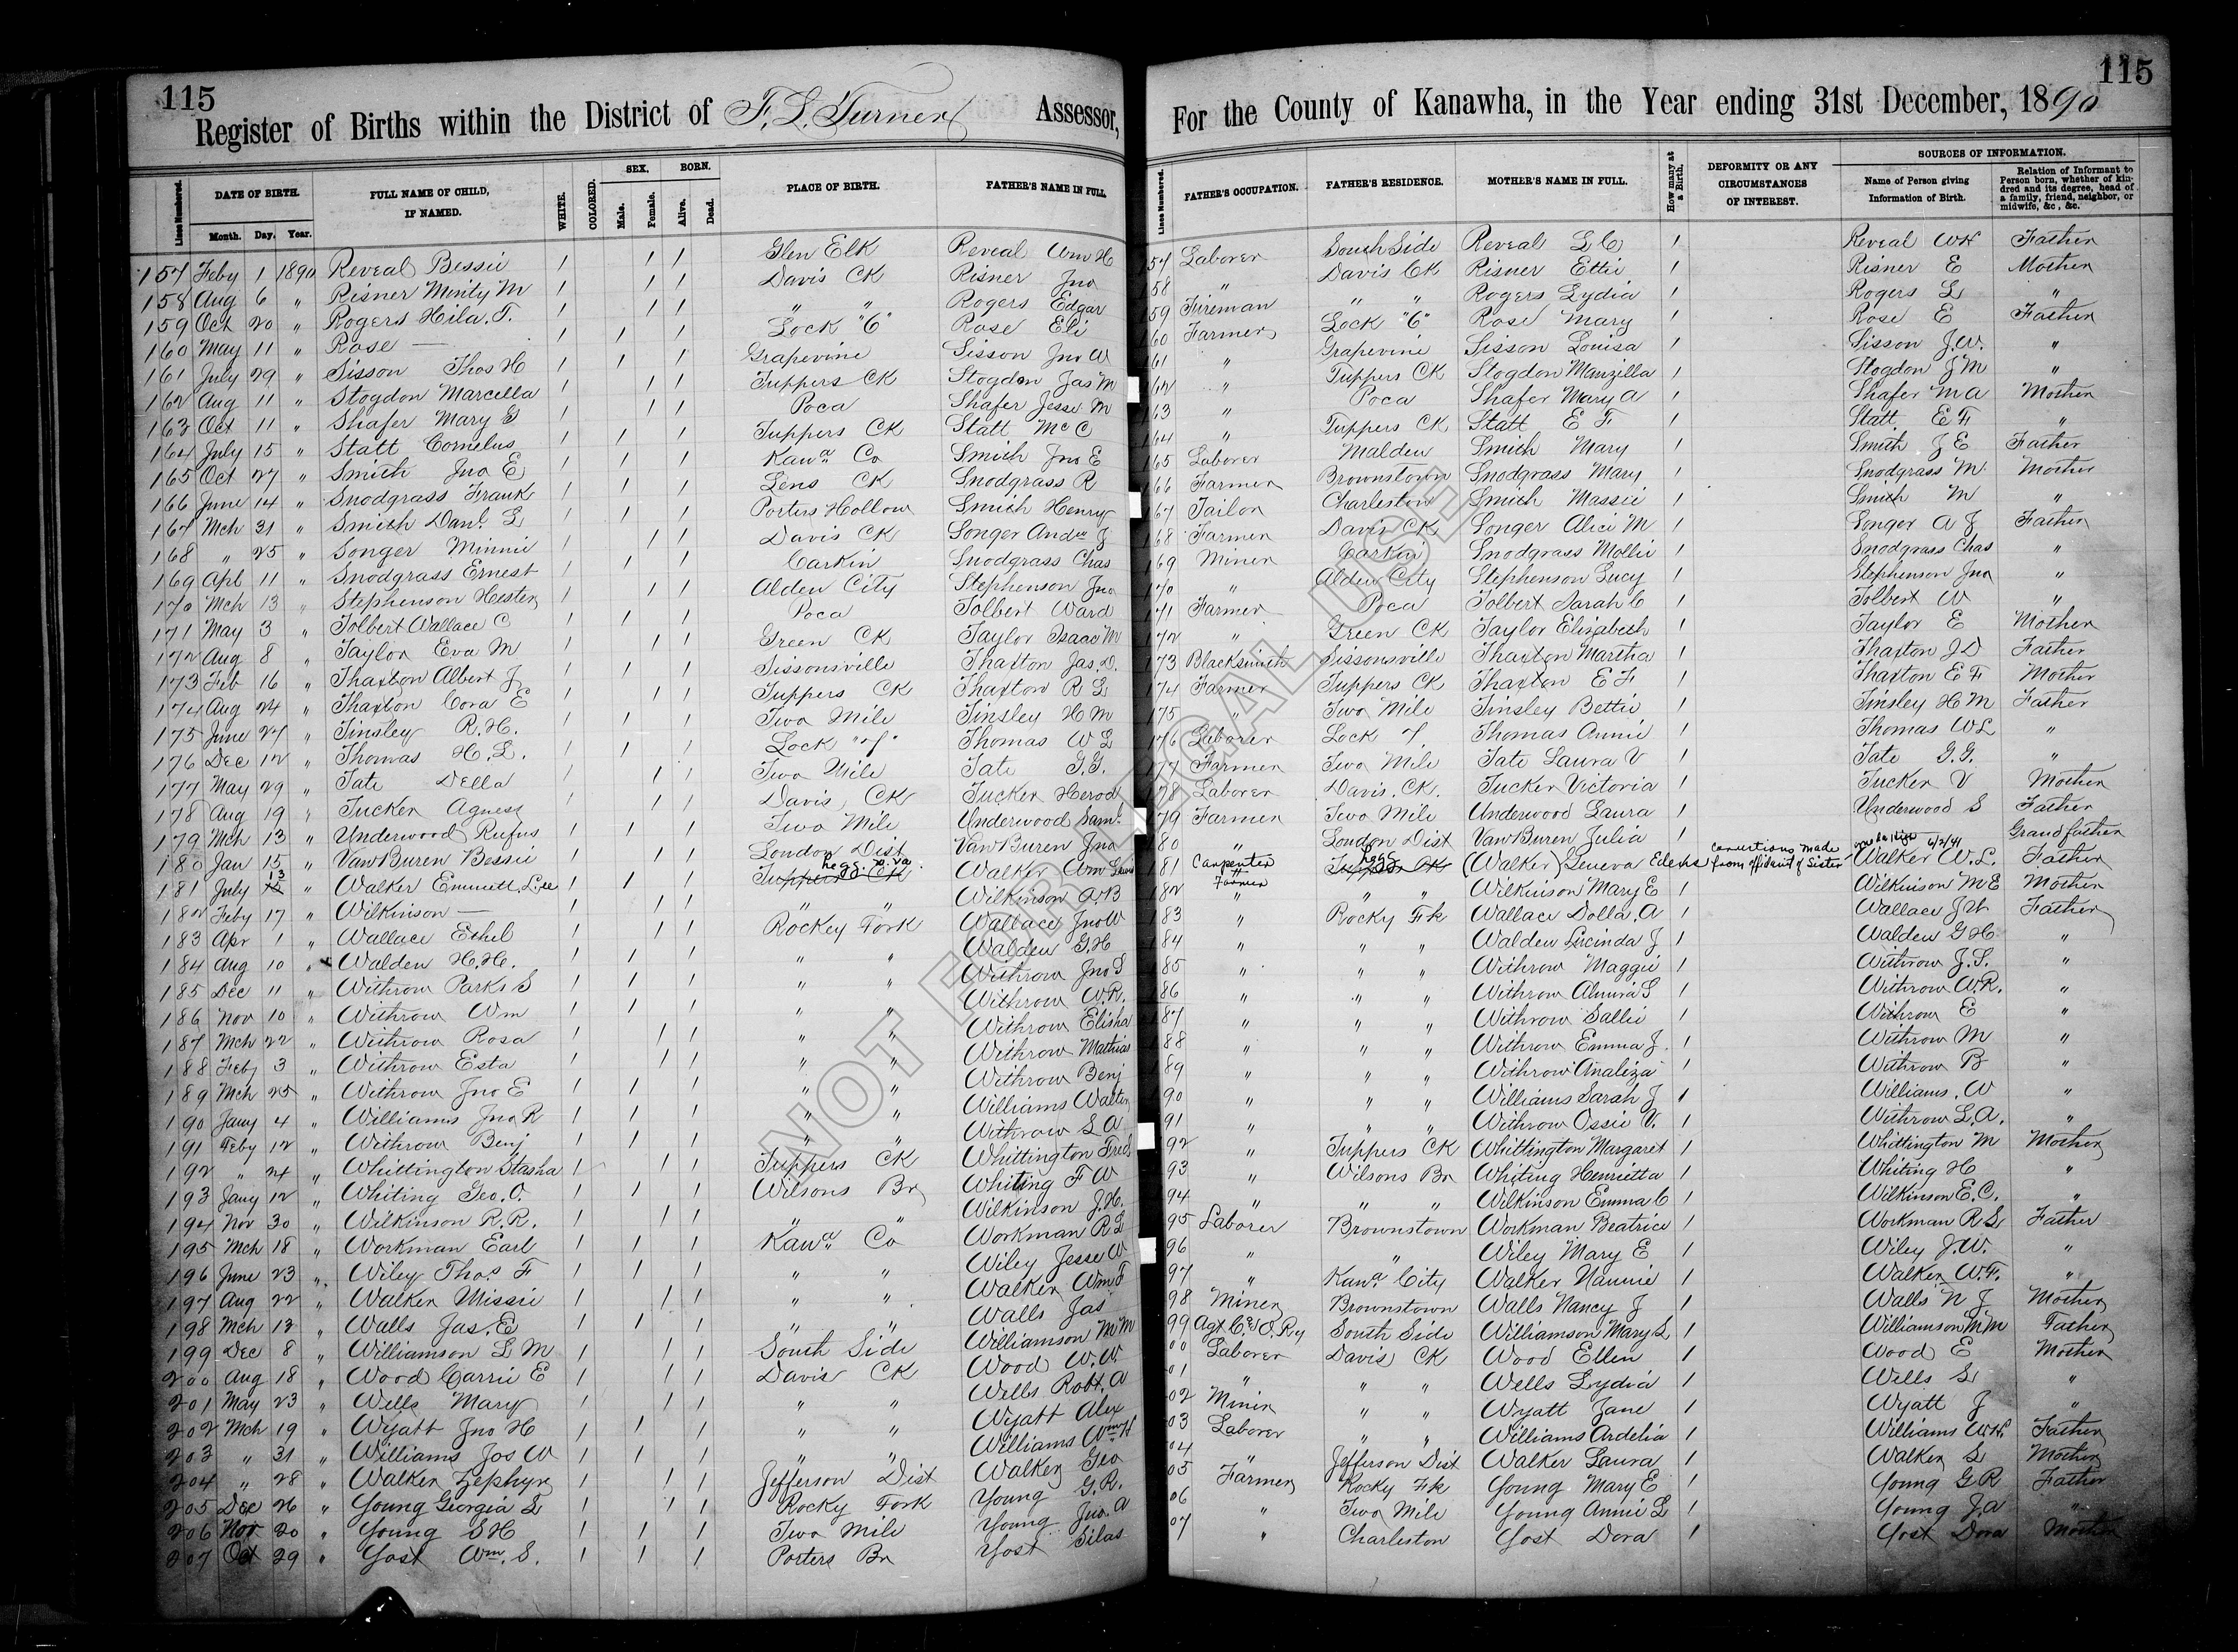 115
Register of Births within the District of F. L. Turner Assessor,
Lines Numbered. DATE OF BIRTH. FULL NAME OF CHILD, IF NAMED. WHITE. COLORED. SEX. BORN. PLACE OF BIRTH. FATHER'S NAME IN FULL
Month. Day. Year. Male. Female. Alive. Dead.
157 Feby 1 1890 Reveal Bessie 1 1 1 Glen Elk Reveal Wm H
158 Aug 6 " Risner Minty M 1 1 1 Davis CK Risner Jno
159 Oct 20 " Rogers Hila. T. 1 1 1 " " Rogers Edgar
160 May 11 " Rose — 1 1 1 Lock "6" Rose Eli
161 July 29 " Sisson Thos H 1 1 1 Grapevine Sisson Jno W
162 Aug 11 " Stogdon Marcella 1 1 1 Tuppers CK Stogdon Jas M
163 Oct 11 " Shafer Mary G 1 1 1 Poca Shafer Jesse M
164 July 15 " Statt Cornelus 1 1 1 Tuppers CK Statt Mc C
165 Oct 27 " Smith Jno E 1 1 1 Kawa Co Smith Jno E
166 June 14 " Snodgrass Frank 1 1 1 Lens CK Snodgrass R
167 Mch 31 " Smith Danl. L 1 1 1 Porters Hollow Smith Henry
168 " 25 " Songer Minnie 1 1 1 Davis CK Songer Andw J
169 Apl 11 " Snodgrass Ernest 1 1 1 Carkin Snodgrass Chas
170 Mch 13 " Stephenson Hester 1 1 1 Alden City Stephenson Jno
171 May 3 " Tolbert Wallace C 1 1 1 Poca Tolbert Ward
172 Aug 8 " Taylor Eva M 1 1 1 Green CK Taylor Isaac M
173 Feb 16 " Thaxton Albert J 1 1 1 Sissonsville Thaxton Jas. D.
174 Aug 24 " Thaxton Cora E 1 1 1 Tuppers CK Thaxton R L
175 June 27 " Tinsley R. H. 1 1 1 Two Mile Tinsley H M
176 Dec 12 " Thomas H. L. 1 1 1 Lock "7" Thomas W L
177 May 29 " Tate Della 1 1 1 Two Mile Tate G. G.
178 Aug 19 " Tucker Agness 1 1 1 Davis CK Tucker Herod
179 Mch 13 " Underwood Rufus 1 1 1 Two Mile Underwood Saml.
180 Jan 15 " VanBuren Bessie 1 1 1 London Dist VanBuren Jno
181 July 13 " Walker Emmett Lee 1 1 1 Tuppers CK Walker Wm Lewis
182 Feby 17 " Wilkinson — 1 1 1 " " Wilkinson A. B
183 Apr 1 " Wallace Ethel 1 1 1 Rockey Fork Wallace Jno W
184 Aug 10 " Walden H. H. 1 1 1 " " Walden G. H
185 Dec 11 " Withrow Parks S 1 1 1 " " Withrow Jno S
186 Nov 10 " Withrow Wm 1 1 1 " " Withrow W. R.
187 Mch 22 " Withrow Rosa 1 1 1 " " Withrow Elisha
188 Feby 3 " Withrow Esta 1 1 1 " " Withrow Mathias
189 Mch 25 " Withrow Jno E 1 1 1 " " Withrow Benj
190 Jany 4 " Williams Jno R 1 1 1 " " Williams Walter
191 Feby 12 " Withrow Benj 1 1 1 " " Withrow L A
192 " 24 " Whittington Stasha 1 1 1 Tuppers CK Whittington Fred S
193 Jany 12 " Whiting Geo. O. 1 1 1 Wilsons Br Whiting F W
194 Nov 30 " Wilkinson R. R. 1 1 1 " " Wilkinson J. H.
195 Mch 18 " Workman Earl 1 1 1 Kawa Co Workman R L
196 June 23 " Wiley Thos. F 1 1 1 " " Wiley Jesse W
197 Aug 22 " Walker Missie 1 1 1 " " Walker Wm F
198 Mch 12 " Walls Jas. E 1 1 1 " " Walls Jas
199 Dec 8 " Williamson L M 1 1 1 South Side Williamson M M
200 Aug 18 " Wood Carrie E 1 1 1 Davis CK Wood W. W.
201 May 23 " Wells Mary 1 1 1 " " Wells Robt. A
202 Mch 19 " Wyatt Jno H 1 1 1 " " Wyatt Alex
203 " 31 " Williams Jos W 1 1 1 " " Williams Wm H
204 " 28 " Walker Zephyr 1 1 1 Jefferson Dist Walker Geo
205 Dec 26 " Young Georgia L 1 1 1 Rocky Fork Young G. R.
206 Nov 20 " Young S H 1 1 1 Two Mile Young Jno. A
207 Oct 29 " Yost Wm. S. 1 1 1 Porters Br Yost Silas
115
For the County of Kanawha, in the Year ending 31st December, 1890
Lines Numbered. FATHER'S OCCUPATION. FATHER'S RESIDENCE. MOTHER'S NAME IN FULL. How many at a Birth. DEFORMITY OR ANY CIRCUMSTANCES OF INTEREST. SOURCES OF INFORMATION.
Name of Person giving Information of Birth. Relation of Informant to Person born, whether of kindred and its degree, head of a family, friend, neighbor, or midwife, &c, &c.
57 Laborer South Side Reveal L C 1 Reveal W H Father
58 " Davis CK Risner Ettie 1 Risner E Mother
59 Fireman " " Rogers Lydia 1 Rogers L "
60 Farmer Lock "6" Rose Mary 1 Rose E Father
61 " Grapevine Sisson Louisa 1 Sisson J. W. "
62 " Tuppers CK Stogdon Manzilla 1 Stogdon J M "
63 " Poca Shafer Mary A 1 Shafer M A Mother
64 " Tuppers CK Statt E F 1 Statt E F "
65 Laborer Malden Smith Mary 1 Smith J E Father
66 Farmer Brownstown Snodgrass Mary 1 Snodgrass M Mother
67 Tailor Charleston Smith Massie 1 Smith M "
68 Farmer Davis CK Songer Alice M 1 Songer A J Father
69 Miner Carkin Snodgrass Mollie 1 Snodgrass Chas "
70 " Alden City Stephenson Lucy 1 Stephenson Jno "
71 Farmer Poca Tolbert Sarah C 1 Tolbert W "
72 " Green CK Taylor Elizabeth 1 Taylor E Mother
173 Blacksmith Sissonsville Thaxton Martha 1 Thaxton J D Father
174 Farmer Tuppers CK Thaxton E F 1 Thaxton E F Mother
175 " Two Mile Tinsley Bettie 1 Tinsley H M Father
176 Laborer Lock 7. Thomas Annie 1 Thomas W L "
177 Farmer Two Mile Tate Laura V 1 Tate G. G. "
78 Laborer Davis. CK. Tucker Victoria 1 Tucker V Mother
79 Farmer Two Mile Underwood Laura 1 Underwood S Father
80 " London Dist VanBuren Julia 1 Grandfather
181 Carpenter Tuppers CK (Walker) Geneva Edens made from affidavit of Sister 6/2/41 Walker W. L. Father
182 " " " Wilkinson Mary E 1 Wilkinson M E Mother
83 " Rocky Fk Wallace Dolla. A 1 Wallace J W Father
84 " " " Walden Lucinda J 1 Walden G H "
85 " " " Withrow Maggie 1 Withrow J. S. "
86 " " " Withrow Almira S 1 Withrow W. R. "
87 " " " Withrow Sallie 1 Withrow E "
88 " " " Withrow Emma J. 1 Withrow M "
89 " " " Withrow Analiza 1 Withrow B "
90 " " " Williams Sarah J 1 Williams. W "
91 " " " Withrow Ossie V. 1 Withrow L. A. "
92 " Tuppers CK Whittington Margaret 1 Whittington M Mother
93 " Wilsons Br Whiting Henrietta 1 Whiting H "
94 " " " Wilkinson Emma C 1 Wilkinson E. C. "
95 Laborer Brownstown Workman Beatrice 1 Workman R L Father
96 " " Wiley Mary E 1 Wiley J. W. "
97 " Kawa City Walker Nannie 1 Walker W. F. "
98 Miner Brownstown Walls Nancy J 1 Walls N J Mother
99 Agt C & O. Ry South Side Williamson Mary L 1 Williamson M M Father
00 Laborer Davis CK Wood Ellen 1 Wood E Mother
01 " " " Wells Lydia 1 Wells L "
02 Miner " " Wyatt Jane 1 Wyatt J "
03 Laborer " " Williams Ardelia 1 Williams W H. Father
04 " Jefferson Dist Walker Laura 1 Walker L Mother
05 Farmer Rocky Fk Young Mary E 1 Young G R Father
06 " Two Mile Young Annie L 1 Young J. A "
07 " Charleston Yost Dora 1 Yost Dora Mother
NOT FOR LEGAL USE